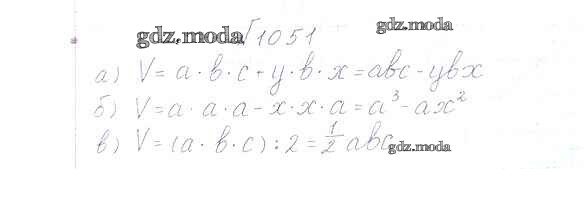 gdz.moda 1051 gdz.moda
а) V = a · b · c + y · b · x = abc - ybx
б) V = a · a · a - x · x · a = a³ - ax²
в) V = (a · b · c) : 2 = 1/2 abc gdz.moda